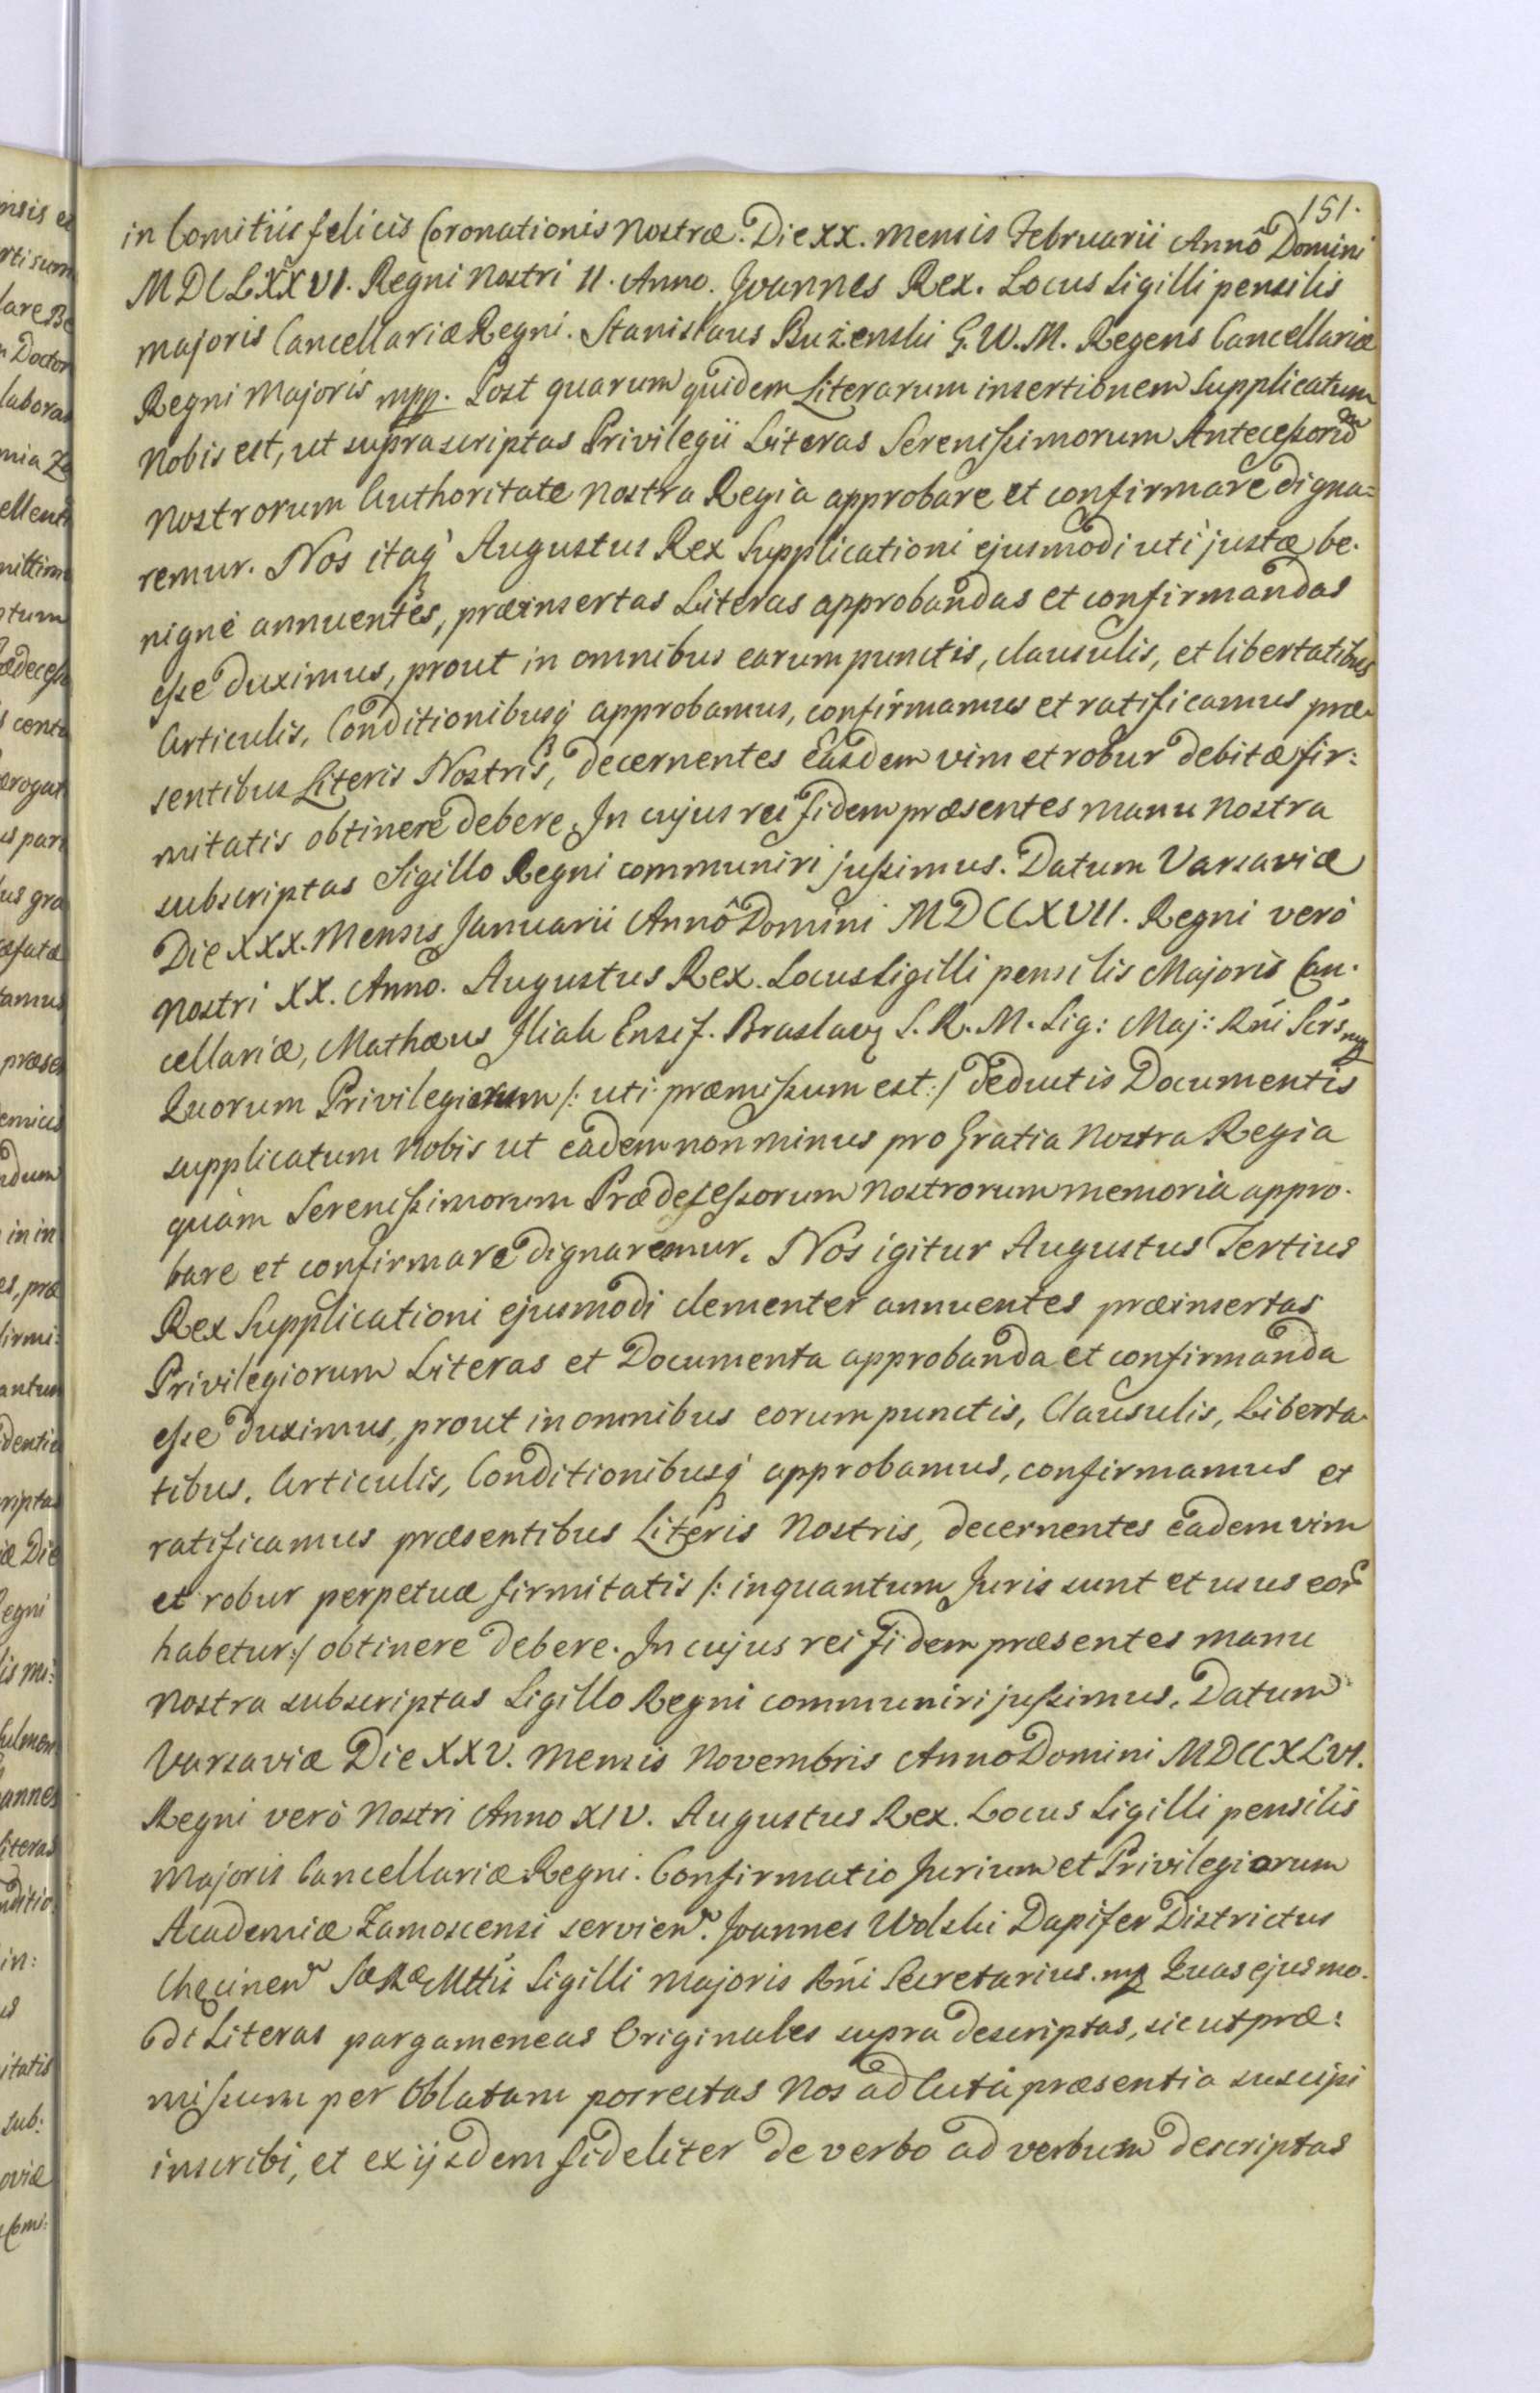 151.
in Comitiis felicis Coronationis Nostræ. Die XX. Mensis Februarii Annô Domini
MDCLXXVI. Regni Nostri II. Anno. Joannes Rex. Locus Sigilli pensilis
majoris Cancellariæ Regni. Stanislaus Bużenski G. W. M. Regens Cancellariæ
Regni Majoris mpp. Post quarum quidem Literarum insertionem supplicatum
Nobis est, ut suprascriptas Privilegii Literas Serenissimorum Antecessorũ
Nostrorum Authoritate Nostra Regia approbare et confirmare digna=
remur. Nos itaq́ Augustus Rex Supplicationi ejusmodi uti justæ be-
nignè annuentes, præinsertas Literas approbandas et confirmandas
esse duximus, prout in omnibus earum punctis, clausulis, et libertatibus
Articulis, Conditionibusq́ approbamus, confirmamus et ratificamus præ-
sentibus Literis Nostris, decernentes easdem vim et robur debitæ fir:
mitatis obtinere debere. In cujus rei fidem præsentes manu nostra
subscriptas Sigillo Regni communiri jussimus. Datum Varsaviæ
Die XXX. Mensis Januarii Annô Domini MDCCXVII. Regni verò
Nostri XX. Anno. Augustus Rex. Locus Sigilli pensilis Majoris Can-
cellariæ, Mathæus Ensif. S. R. M. Sig: Maj: Rńi
Quorum Privilegiorum /: uti præmissum est :/ deductis Documentis
supplicatum Nobis ut eadem non minus pro Gratia Nostra Regia
quàm Serenissimorum Prædecessorum Nostrorum memoria appro-
bare et confirmare dignaremur. Nos igitur Augustus Tertius
Rex Supplicationi ejusmodi clementer annuentes præinsertas
Privilegiorum Literas et Documenta approbanda et confirmanda
esse duximus, prout in omnibus eorum punctis, Clausulis, Liberta-
tibus, Articulis, Conditionibusq́ approbamus, confirmamus et
ratificamus præsentibus Literis Nostris, decernentes eadem vim
et robur perpetuæ firmitatis /: inquantum Juris sunt et usus eor̃
habetur :/ obtinere debere. In cujus rei fidem præsentes manu
Nostra subscriptas Sigillo Regni communiri jussimus. Datum
Varsaviæ Die XXV. Mensis Novembris Anno Domini MDCCXLVI.
Regni verò Nostri Anno XIV. Augustus Rex. Locus Sigilli pensilis
Majoris Cancellariæ Regni. Confirmatio Jurium et Privilegiorum
Academiæ Zamoscensi servien. Joannes Wolski Dapifer Districtus
Sigilli Majoris Rńi Secretarius. mp Quas ejusmo-
di Literas pargameneas Originales supra descriptas, sicut præ:
missum per Oblatam porrectas Nos ad Acta præsentia suscipi
inscribi, et ex ijsdem fideliter de verbo ad verbum descriptas